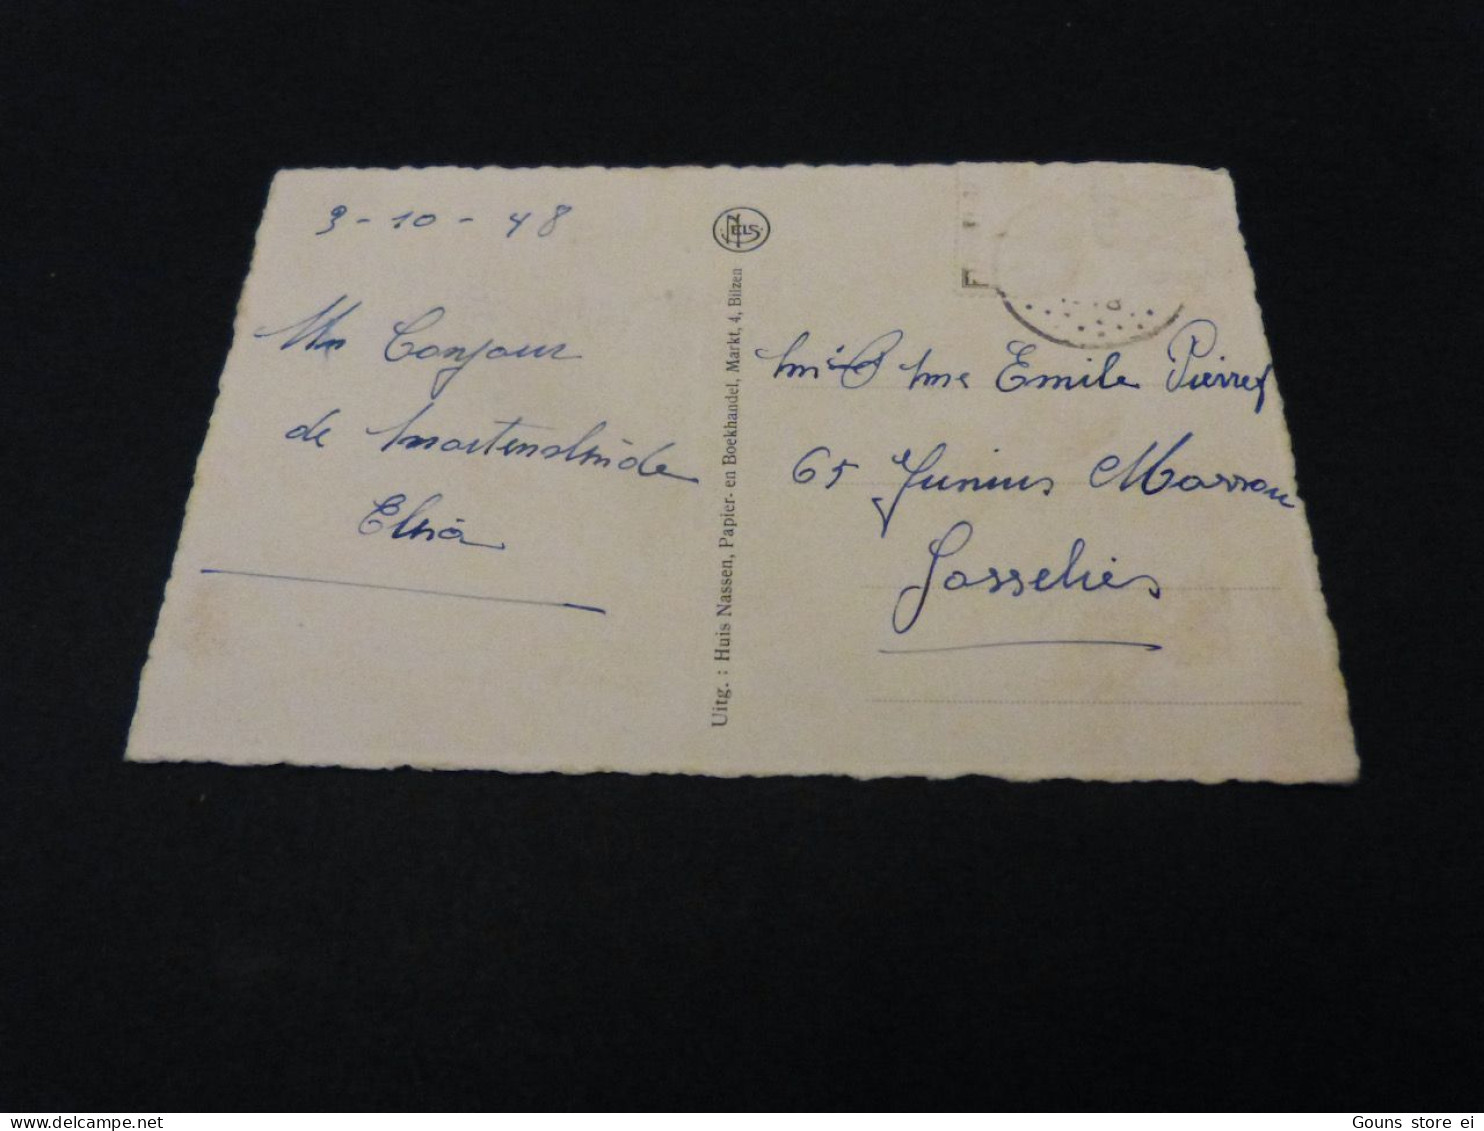 3-10-48
Un Bonjour
de Martenslinde
Elsia
NELS
Uitg. : Huis Nassen, Papier- en Boekhandel, Markt, 4, Bilzen
Mr & Mme Emile Pierret
65 Junius Masson
Gosselies
Gouns store ei